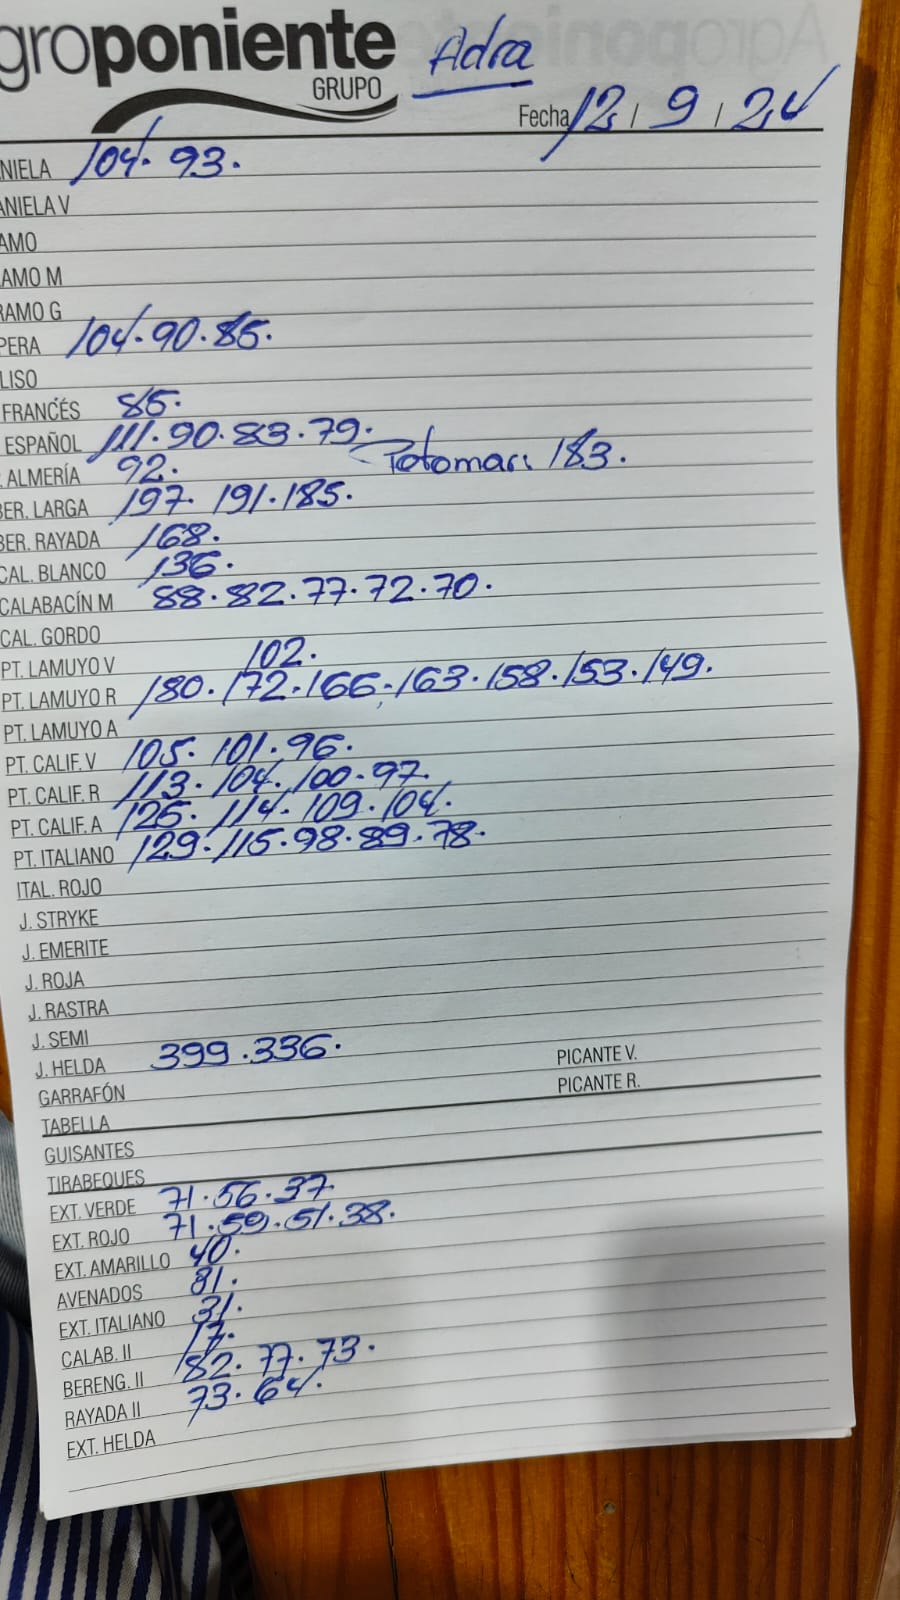 groponiente Adra
GRUPO
Fecha 12 / 9 / 24
NIELA 104. 93.
ANIELA V
AMO
AMO M
RAMO G
PERA 104. 90. 85.
LISO
FRANCÉS 85.
ESPAÑOL 111. 90. 83. 79.
. ALMERÍA 92. Potomar. 183.
BER. LARGA 197. 191. 185.
BER. RAYADA 168.
CAL. BLANCO 136.
CALABACÍN M 88. 82. 77. 72. 70.
CAL. GORDO
PT. LAMUYO V 102.
PT. LAMUYO R 180. 172. 166. 163. 158. 153. 149.
PT. LAMUYO A
PT. CALIF. V 105. 101. 96.
PT. CALIF. R 113. 104. 100. 97.
PT. CALIF. A 125. 114. 109. 104.
PT. ITALIANO 129. 115. 98. 89. 78.
ITAL. ROJO
J. STRYKE
J. EMERITE
J. ROJA
J. RASTRA
J. SEMI
J. HELDA 399. 336. PICANTE V.
GARRAFÓN PICANTE R.
TABELLA
GUISANTES
TIRABEQUES
EXT. VERDE 71. 56. 37.
EXT. ROJO 71. 59. 51. 38.
EXT. AMARILLO 40.
AVENADOS 81.
EXT. ITALIANO 31.
CALAB. II 17.
BERENG. II 82. 77. 73.
RAYADA II 73. 64.
EXT. HELDA